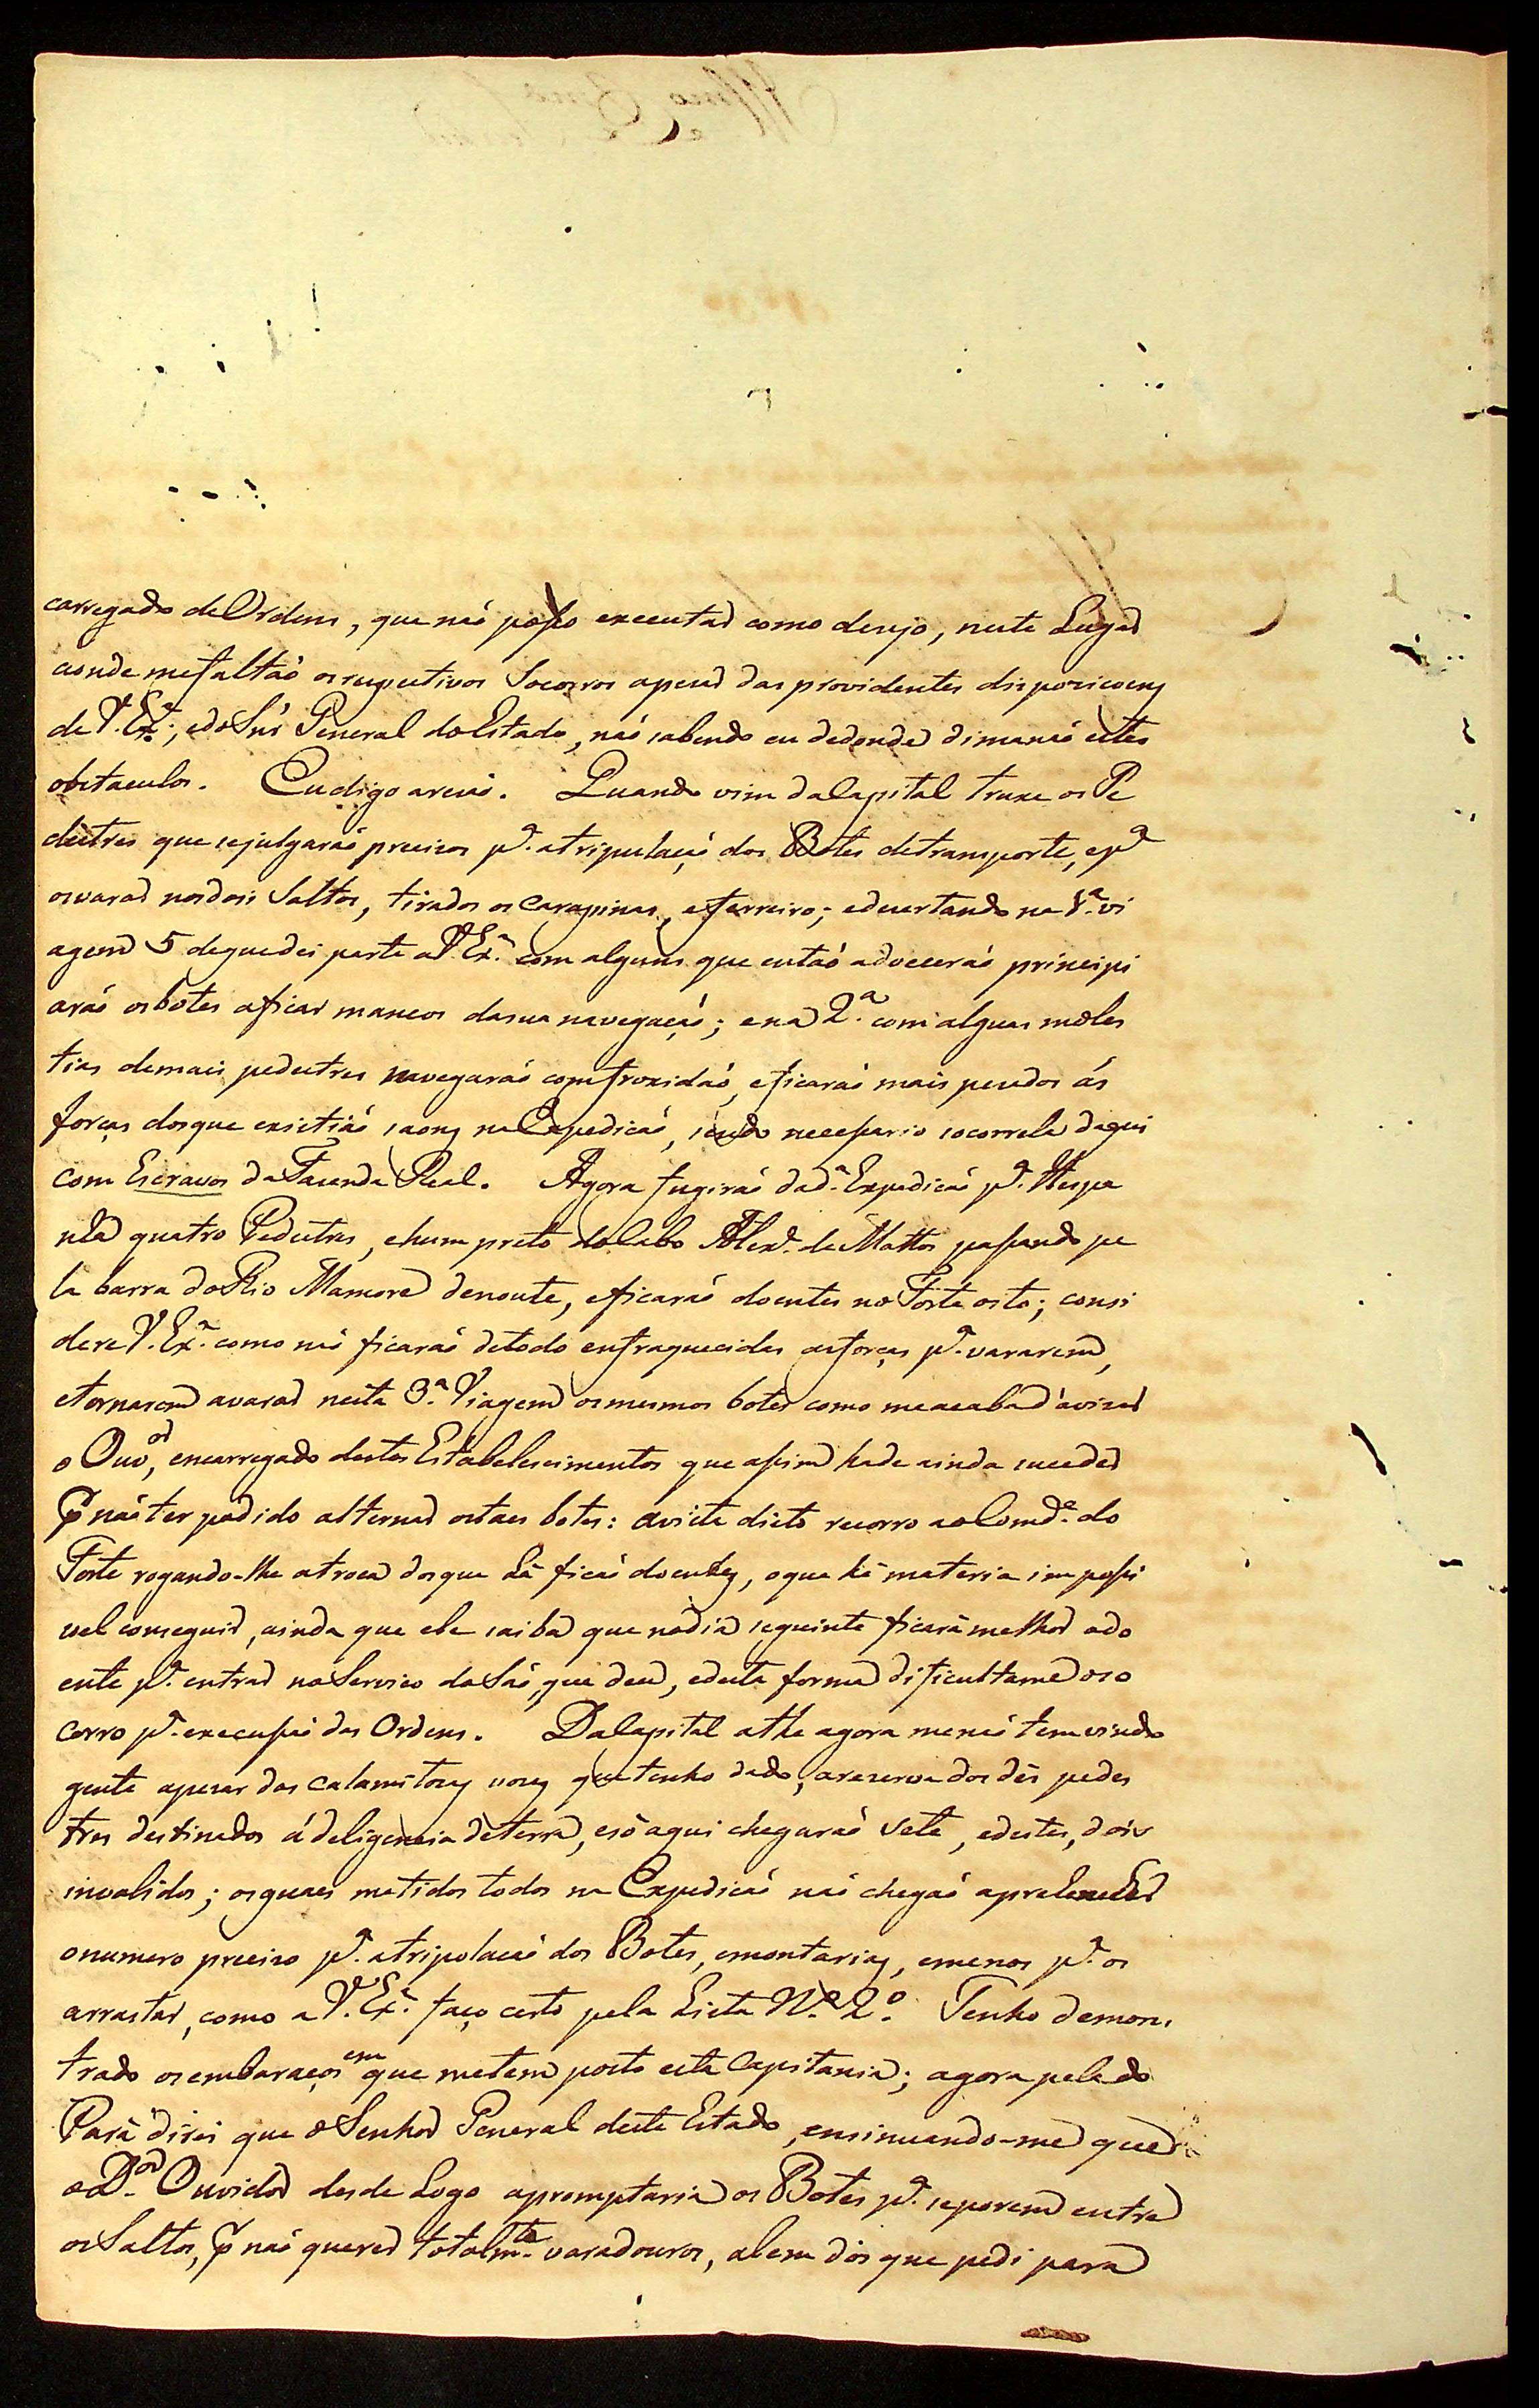 carregado de Ordens, que naõ poßo executar como desejo, neste Lugar
aonde mefaltaõ os respectivos Socorros apesar das providentes disposicoens
de V. Exª., edo Snr̃ General do Estado, naõ sabendo eu dedonde dimanaõ estes
obstaculos. Eu digo a resaõ. Quando vim da Capital truxe os Pe
destres que sejulgaraõ precisos pª. atripulaçaõ dos Botes detransporte, epª
osvarar nosdois Saltos, tirados os Carapinas, eferreiro; edesertando na 1ª. vi
agem 5 deque dei parte a V. Exª. com alguns que entaõ adoeceraõ principi
araõ osbotes aficar mancos dasua navegaçaõ; ena 2ª. com alguas moles
tias demais pedestres navegaraõ comfroxidaõ, eficaraõ mais pesados ás
forças dosque existiaõ saons na Expedicaõ, sendo neceßario socorrela daqui
com Escravos da Fazenda Real. Agora fugiraõ dadª. Expedicaõ pª. Hespa
nha quatro Pedestres, ehum preto do Cabo Alexe. de Mattos paßando pe
la barra do Rio Mamoré denoute, eficaraõ doentes no Forte oito; consi
dere V. Exª. como naõ ficaraõ detodo enfraquecidas asforças pª. vararem,
etornarem avarar nesta 3ª. Viagem osmesmos botes como meacaba d'avisar
o Ouvor, encarregado destes Estabelescimentos que aßim hade ainda suceder
p naõ ter podido alternar ostaes botes: avista disto recorro ao Comde. do
Forte rogando-lhe atroca dosque lá ficaõ doentes, oque hé materia impoßi
vel conseguir, ainda que ele saiba que nodia seguinte ficará melhor odo
ente pª. entrar no Servico do Saõ, que deu, edesta forma dificultame oso
corro pª. execußaõ das Ordens. Da Capital athe agora menaõ tem vindo
gente apesar das calamitozas vozes que tenho dado, areserva dos dés pedes
tres destinados á deligencia de terra, esó aqui chegaraõ Sete, edestes, dois
invalidos; osquaes metidos todos na Expedicaõ naõ chegaõ aprehencher
onumero preciso pª. atripolacaõ dos Botes, emontarias, emenos pª. os
arrastar, como a V. Exª. faço certo pela Lista Nº. 2º. Tenho demons
trado osembaraços em que metem posto esta Capitania; agora pelado
Pará direi que o Senhor General deste Estado, ensinuando-me que
o Dor. Ouvidor desde Logo apromptaria os Botes pª. seporem entre
os Saltos, p naõ querer totalmte. varadouros, alem dos que pedi para